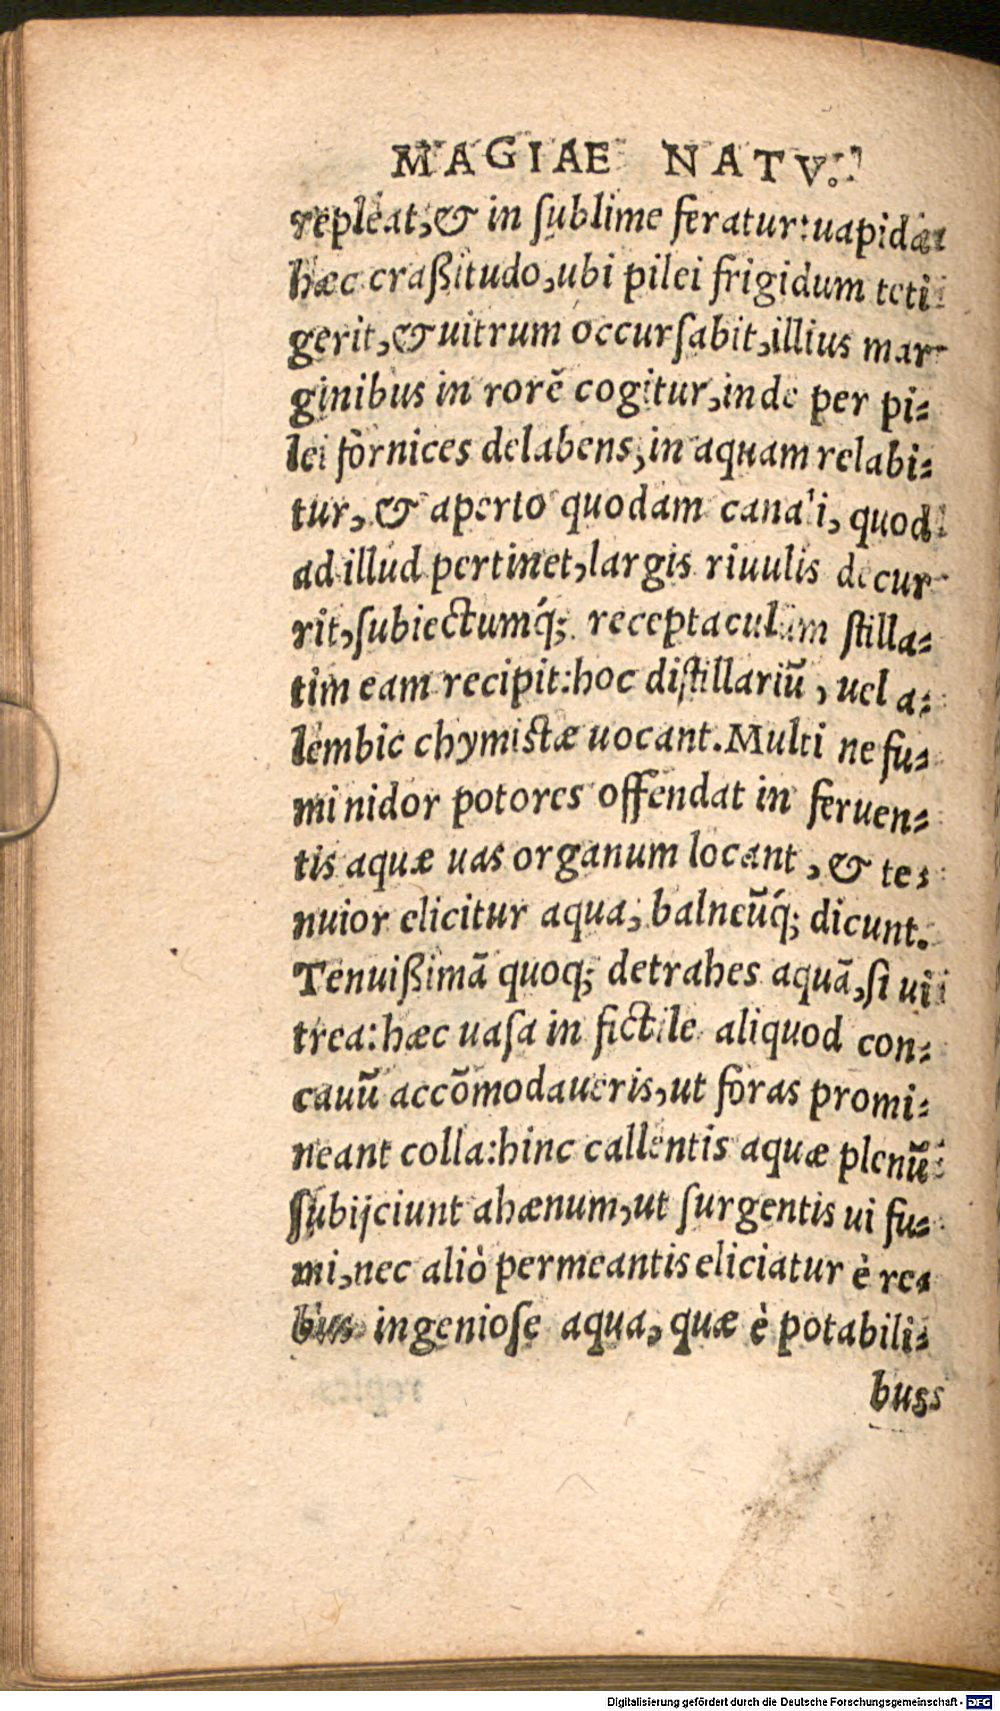 MAGIAE NATV.
repleat, & in ſublime feratur: uapida
hæc craßitudo, ubi pilei frigidum teti
gerit, & uitrum occurſabit, illius mar
ginibus in rorē cogitur, inde per pi⸗
lei fornices delabens, in aquam relabi⸗
tur, & aperto quodam canali, quod
ad illud pertinet, largis riuulis decur
rit, ſubiectumq́; receptaculum ſtilla⸗
tim eam recipit: hoc diſtillariū, uel a⸗
lembic chymistæ uocant. Multi ne fu⸗
mi nidor potores offendat in feruen⸗
tis aquæ uas organum locant, & te⸗
nuior elicitur aqua, balneūq́; dicunt.
Tenuißimā quoq; detrahes aquā, ſi ui
trea: hæc uaſa in fictile aliquod con⸗
cauū accōmodaueris, ut foras promi⸗
neant colla: hinc callentis aquæ plenū
ſubijciunt ahænum, ut ſurgentis ui fu⸗
mi, nec aliò permeantis eliciatur è re⸗
bus ingenioſe aqua, quæ è potabili⸗
bus
Digitalisierung gefördert durch die Deutsche Forschungsgemeinschaft - DFG